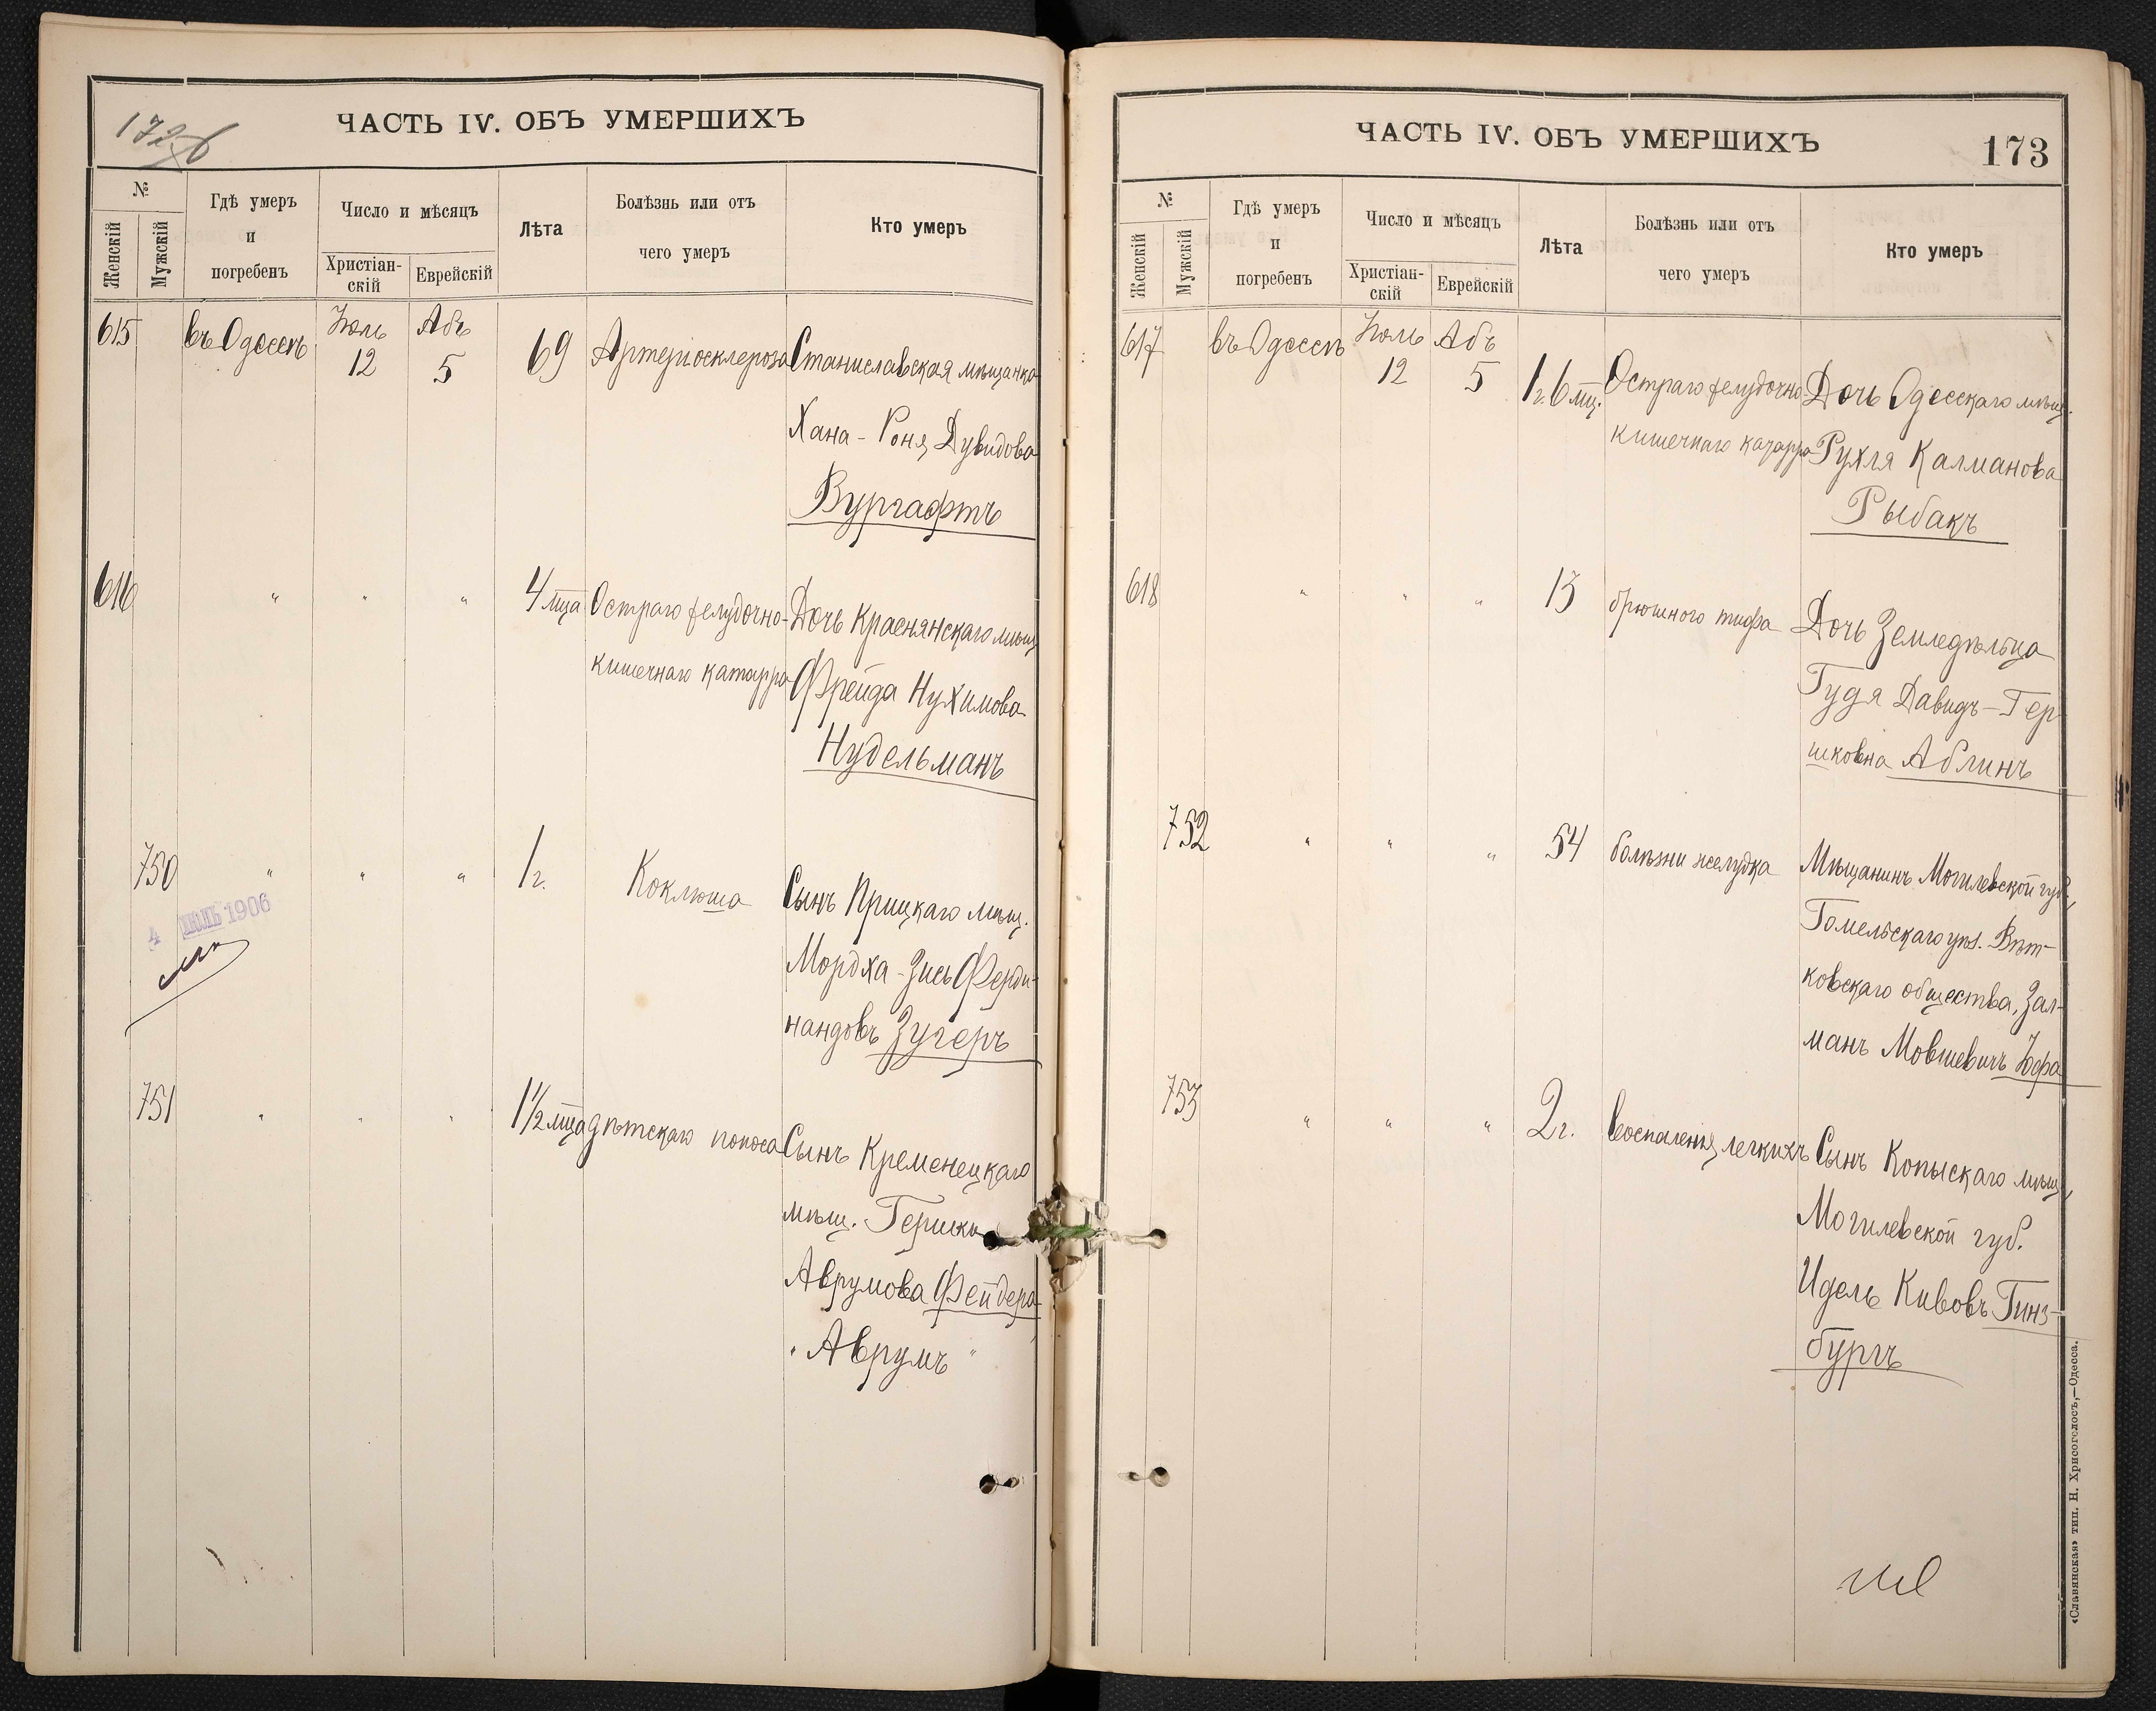 172
ЧАСТЬ IV. ОБЪ УМЕРШИХЪ
№
Женскій
Мужскій
Гдѣ умеръ
и
погребенъ
Число и мѣсяцъ
Христіан-
скій
Еврейскій
Лѣта
Болѣзнь или отъ
чего умеръ
Кто умеръ
615 въ Одессѣ Іюль 12 Абъ 5 69 Артеріосклероза Станиславская мѣщанка
Хана-Роня Дувидова
Вургафтъ
616 " " " 4 мца Остраго желудочно- Дочь Краснянскаго мѣщ.
кишечнаго катарра Фрейда Нухимова
Нудельманъ
750 " " " 1 г. Коклюша Сынъ Прицкаго мѣщ.
4 ІЮЛЬ 1906
Мордха-Зись Ферди-
нандовъ Зугеръ
751 " " " 1½ мца дѣтскаго поноса Сынъ Кременецкаго
мѣщ. Гершка
Аврумова Фейдера
"Аврумъ"
ЧАСТЬ IV. ОБЪ УМЕРШИХЪ
173
№
Женскій
Мужскій
Гдѣ умеръ
и
погребенъ
Число и мѣсяцъ
Христіан-
скій
Еврейскій
Лѣта
Болѣзнь или отъ
чего умеръ
Кто умеръ
617 въ Одессѣ Іюль 12 Абъ 5 1 г. 6 мц. Остраго желудочно- Дочь Одесскаго мѣщ.
кишечнаго катарра Рухля Калманова
Рыбакъ
618 " " " 13 брюшного тифа Дочь Земледѣльца
Гудя Давидъ-Гер-
шковна Аблинъ
752 " " " 54 болѣзни желудка Мѣщанинъ Могилевской губ.,
Гомельскаго уѣз. Вѣт-
ковскаго общества, Зал-
манъ Мовшевичъ Іофа
753 " " " 2 г. воспаленія легкихъ Сынъ Копыскаго мѣщ.,
Могилевской губ.
Идель Кивовъ Гинз-
бургъ
«Славянская» тип. Н. Хрисогелосъ,—Одесса.